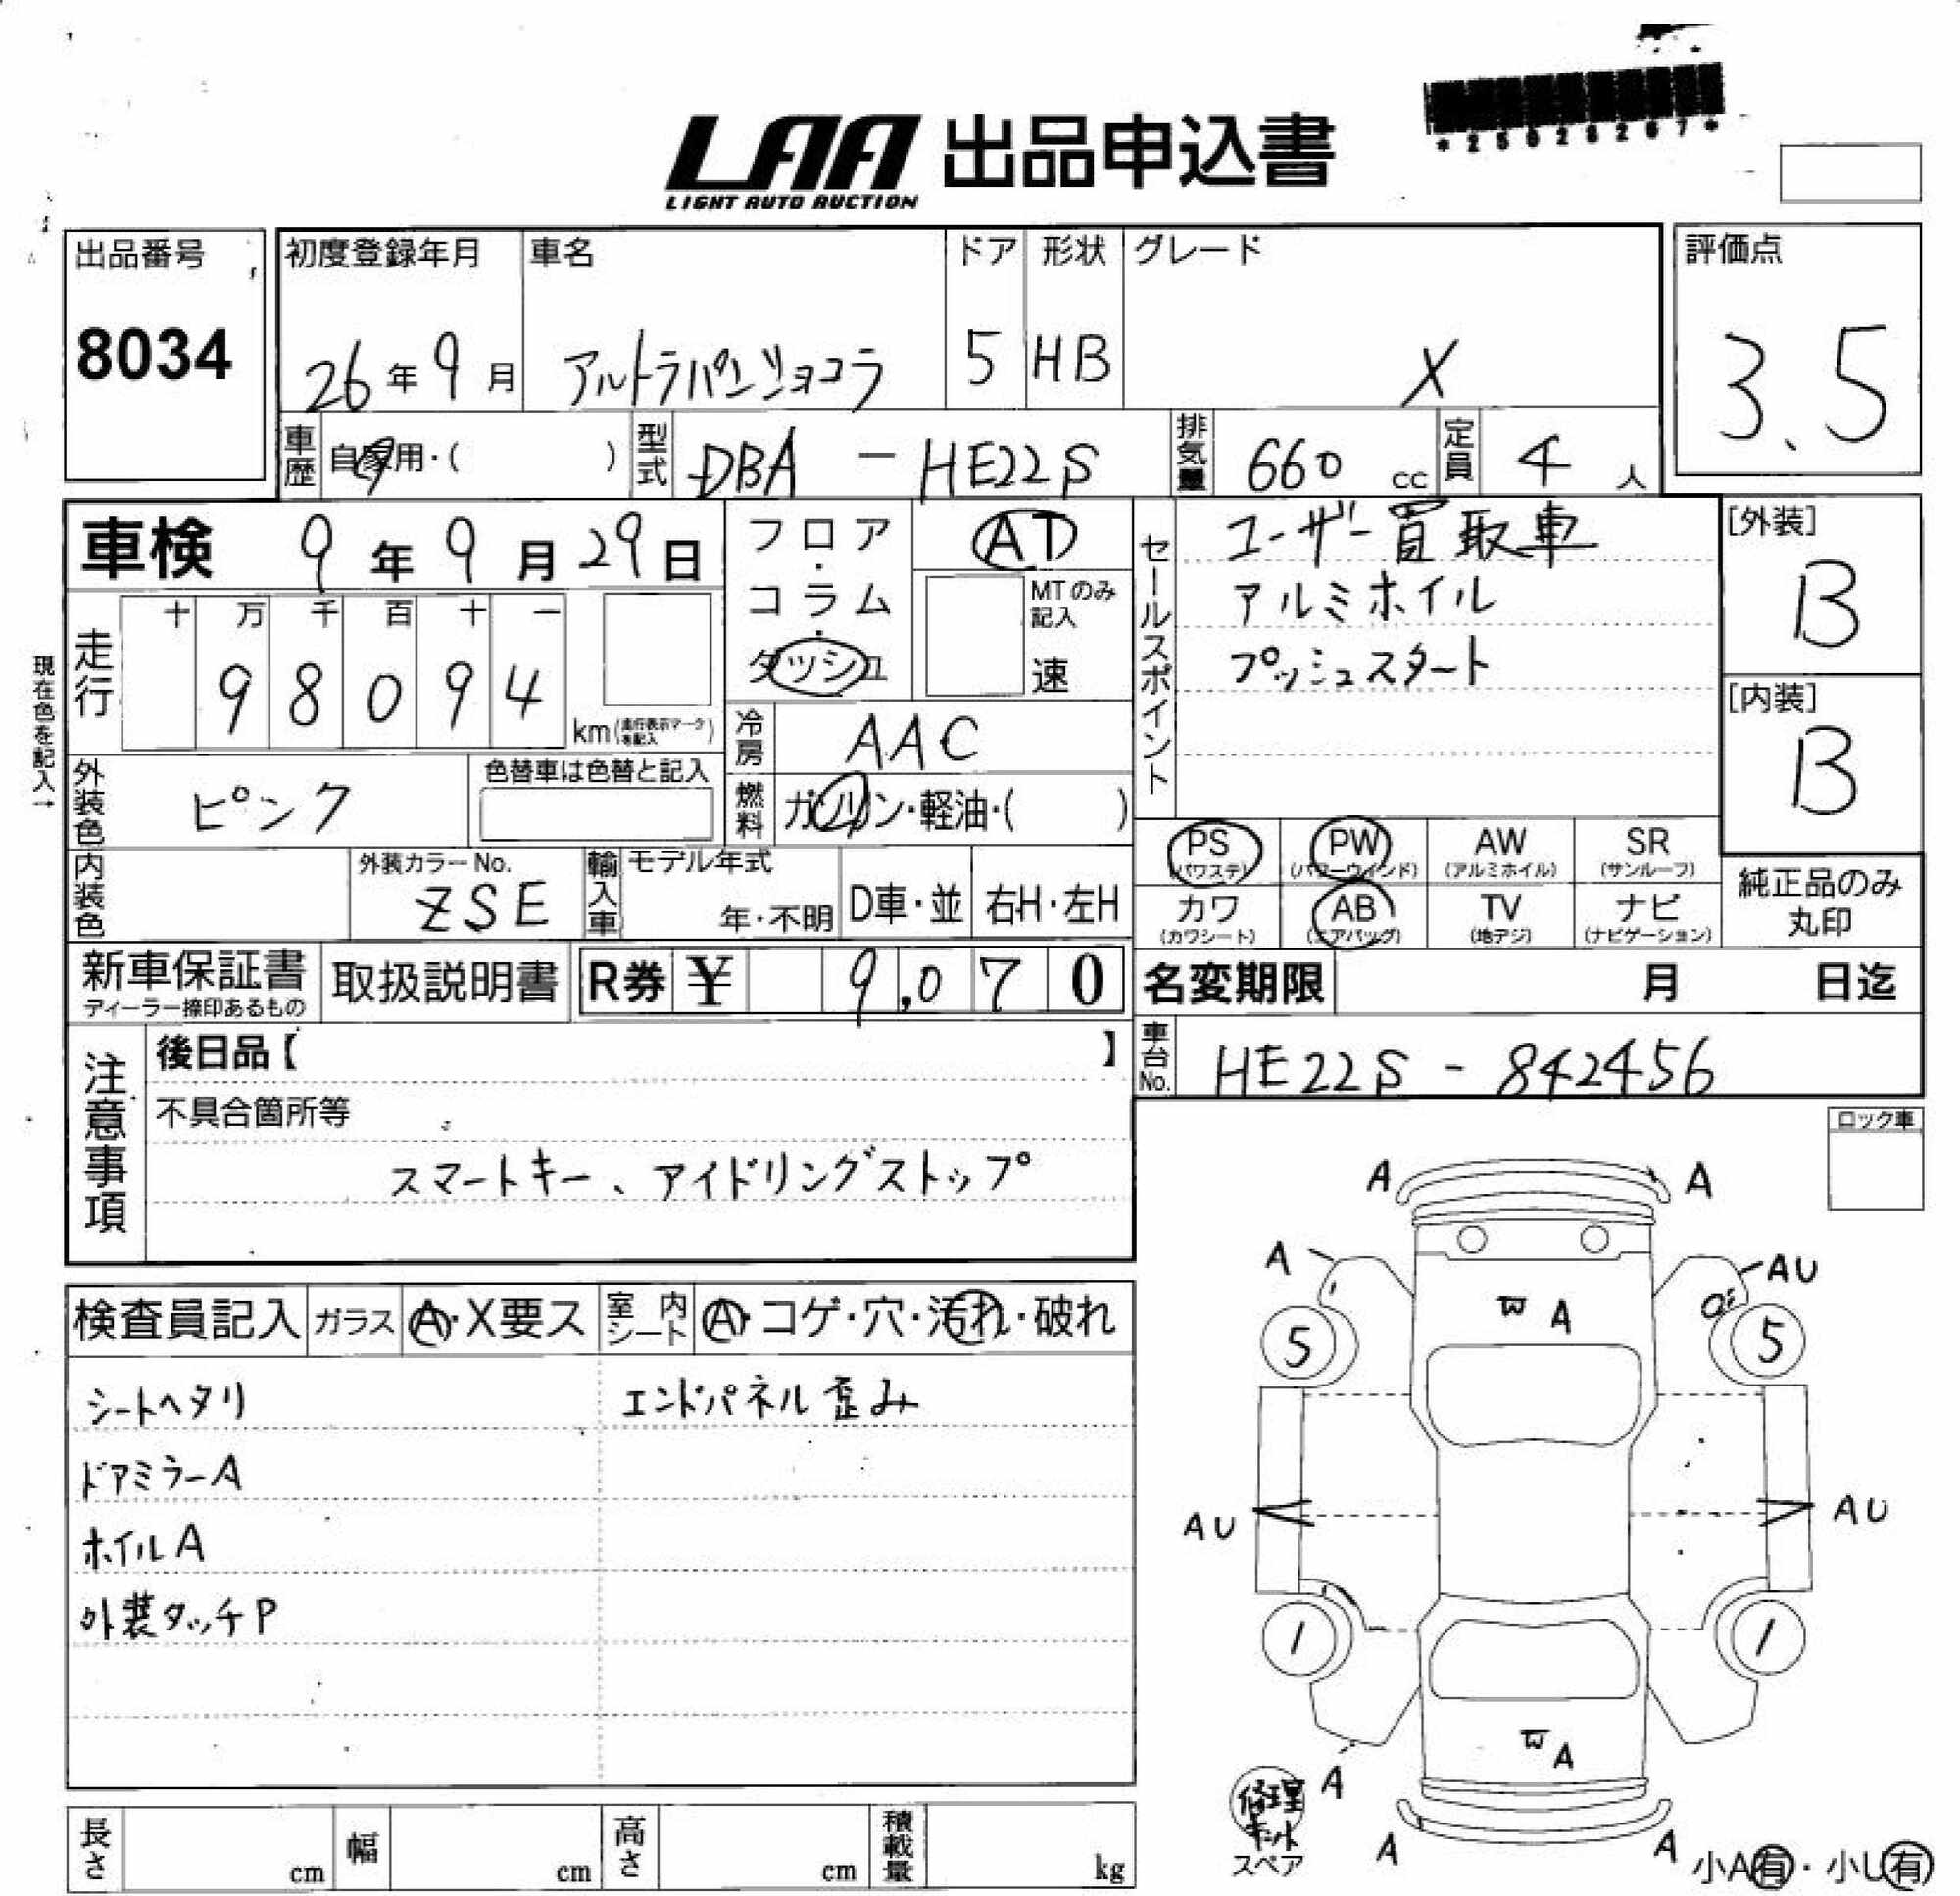 *25028267*
LAA 出品申込書
LIGHT AUTO AUCTION
出品番号
8034
初度登録年月
26年9月
車名
アルトラパンショコラ
ドア
5
形状
HB
グレード
X
評価点
3.5
車歴 自家用・( )
型式 DBA - HE22S
排気量 660 cc
定員 4 人
車検 9年9月29日
フロア・コラム・ダッシュ
AT
MTのみ記入
速
セールスポイント
ユーザー買取車
アルミホイル
プッシュスタート
[外装]
B
[内装]
B
現在色を記入→
走行
十 万 千 百 十 一
9 8 0 9 4
km (走行表示マークを記入)
冷房 AAC
燃料 ガソリン・軽油・( )
外装色 ピンク
色替車は色替と記入
内装色
外装カラーNo.
ZSE
輸入車
モデル年式
年・不明
D車・並
右H・左H
PS (パワステ)
PW (パワーウインド)
AW (アルミホイル)
SR (サンルーフ)
カワ (カワシート)
AB (エアバッグ)
TV (地デジ)
ナビ (ナビゲーション)
純正品のみ
丸印
新車保証書
ディーラー捺印あるもの
取扱説明書
R券 ¥ 9,070
名変期限 月 日迄
車台No. HE22S - 842456
注意事項
後日品【 】
不具合箇所等
スマートキー、アイドリングストップ
ロック車
検査員記入
ガラス A・X要ス
室内シート A・コゲ・穴・汚れ・破れ
シートヘタリ
エンドパネル歪み
ドアミラーA
ホイルA
外装タッチP
A A
A AU
W A
5 5
AU AU
1 1
W A
A
修理キット
スペア
A A
小A有・小U有
長さ cm
幅 cm
高さ cm
積載量 kg